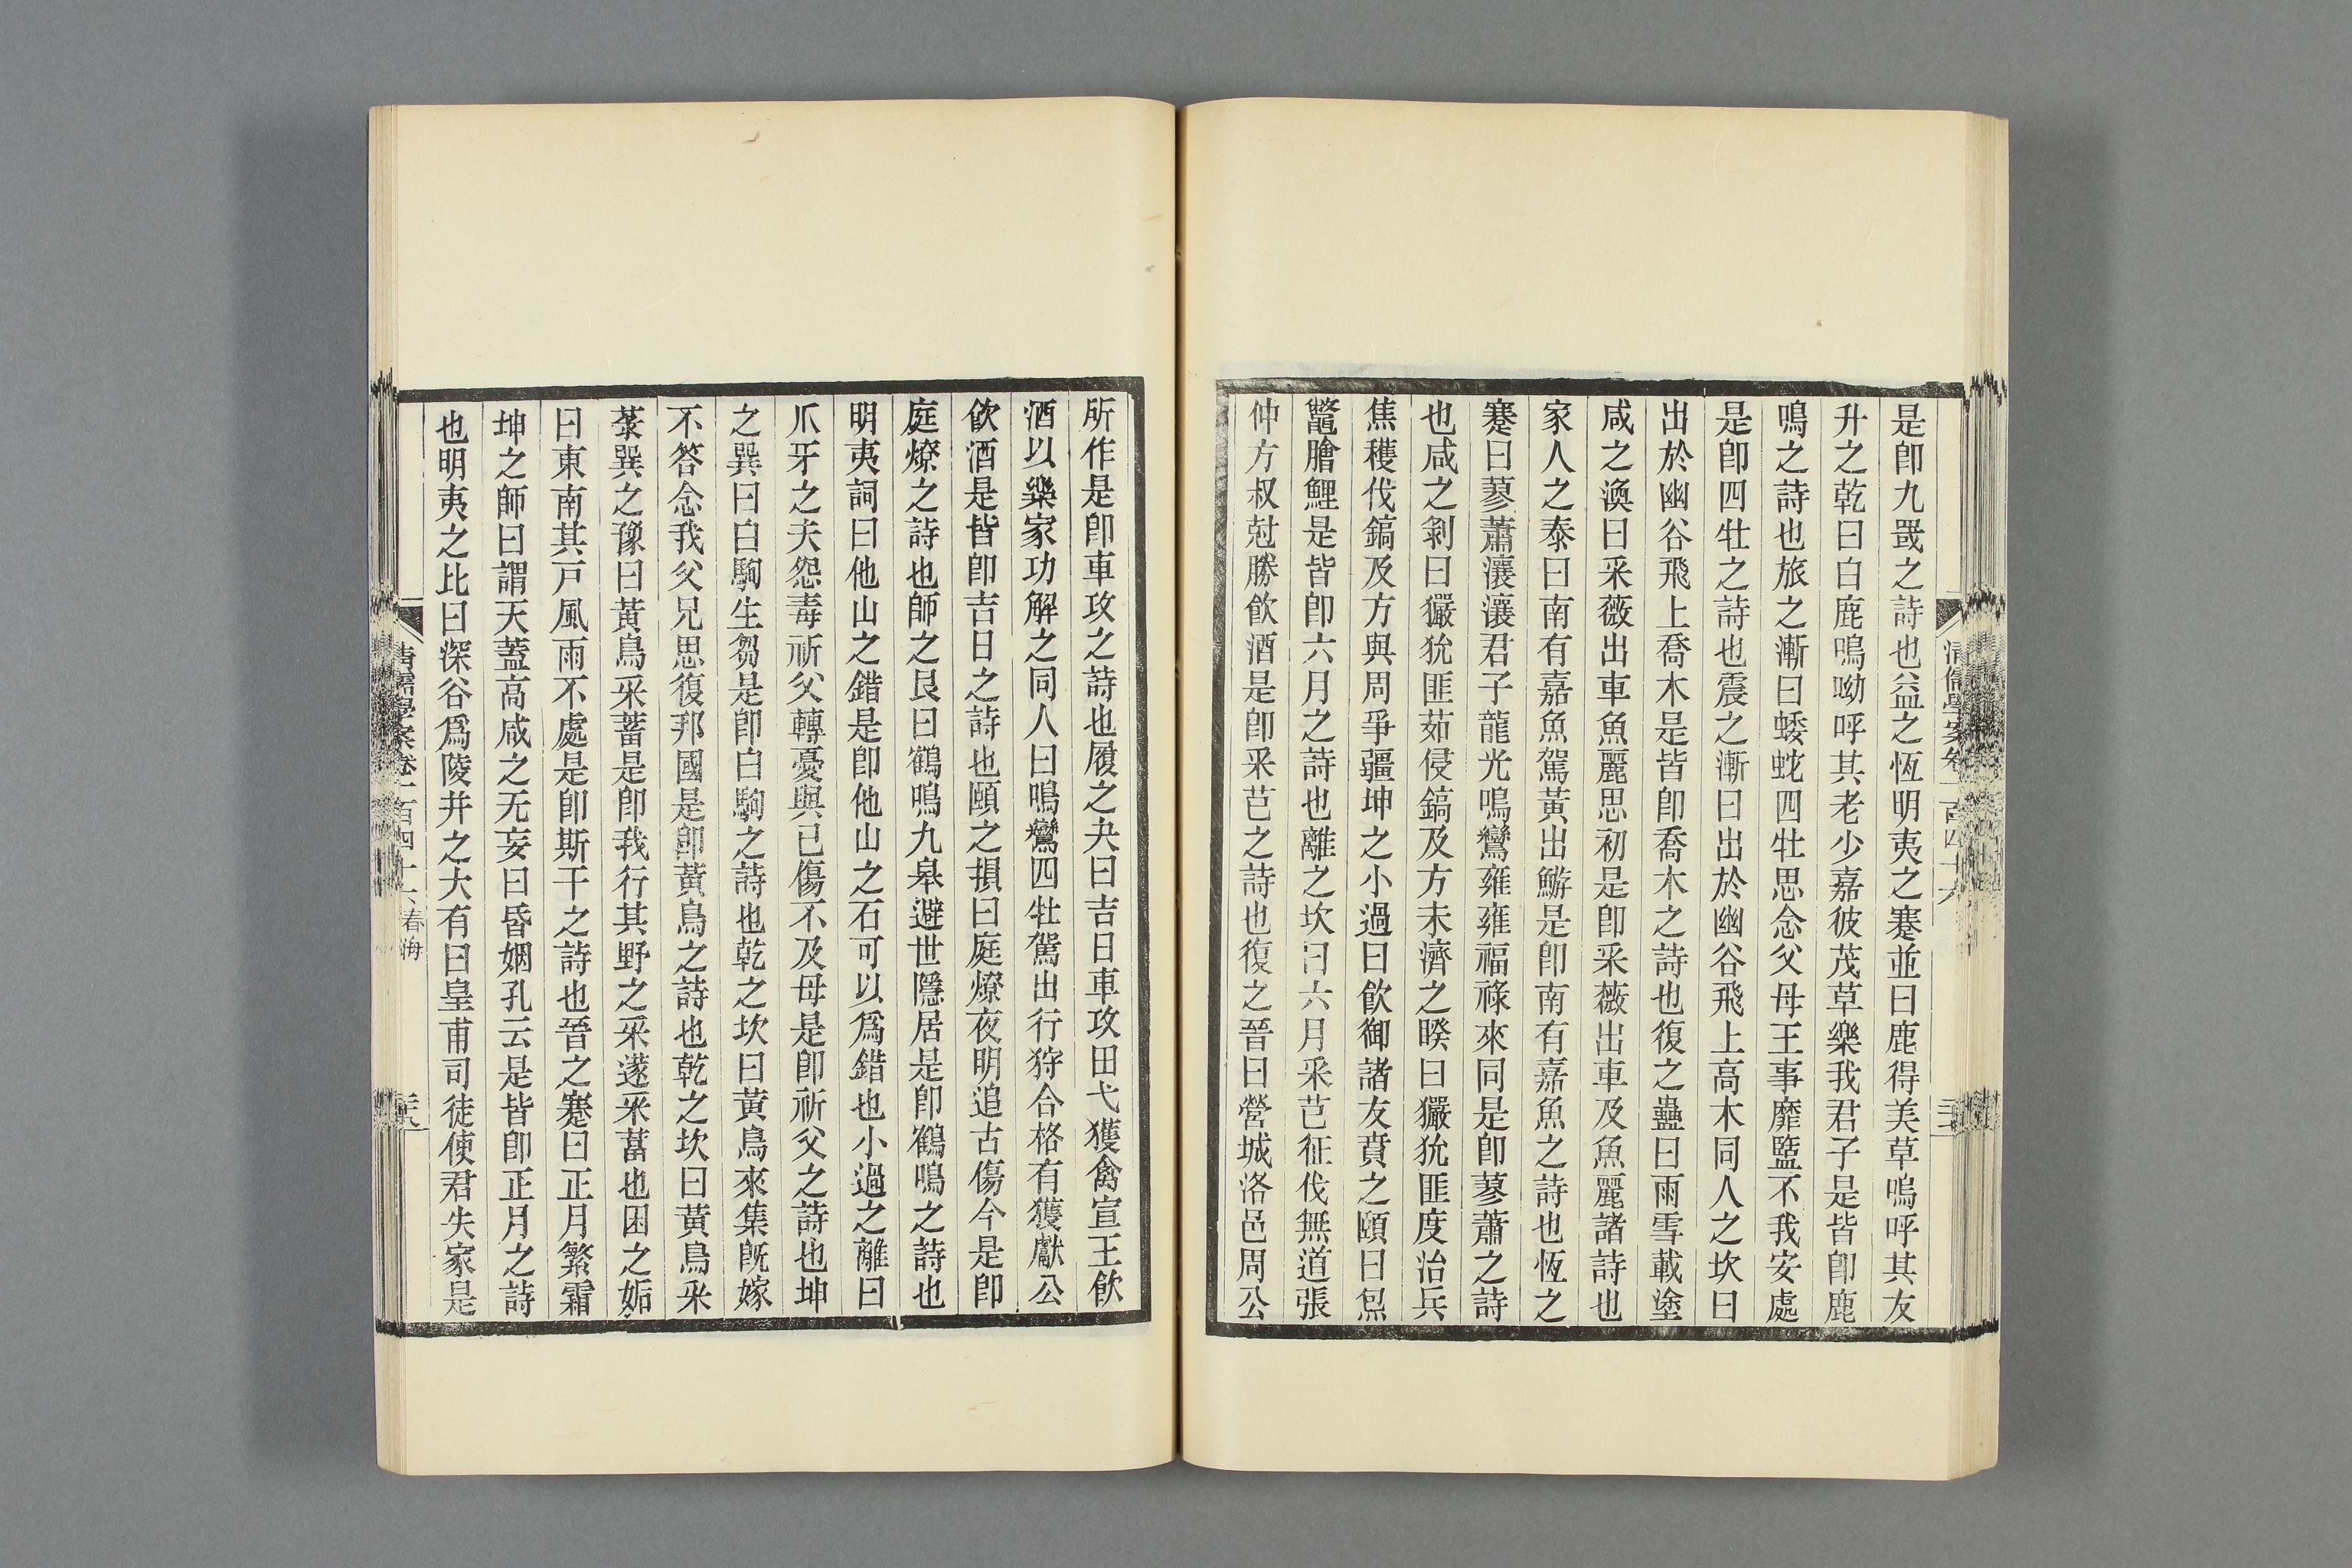 是卽九罭之詩也益之恆明夷之蹇並曰鹿得美草嗚呼其友
升之乾曰白鹿鳴呦呼其老少嘉彼茂草樂我君子是皆卽鹿
鳴之詩也旅之漸曰蜲蛇四牡思念父母王事靡盬不我安處
是卽四牡之詩也震之漸曰出於幽谷飛上高木同人之坎曰
出於幽谷飛上喬木是皆卽喬木之詩也復之蠱曰雨雪載塗
咸之渙曰采薇出車魚麗思初是卽采薇出車及魚麗諸詩也
家人之泰曰南有嘉魚駕黃出鰷是卽南有嘉魚之詩也恆之
蹇曰蓼蕭瀼瀼君子龍光鳴鸞雍雍福祿來同是卽蓼蕭之詩
也咸之剝曰玁狁匪茹侵鎬及方未濟之睽曰玁狁匪度治兵
焦穫伐鎬及方與周爭疆坤之小過曰飮御諸友賁之頤曰炰
鼈膾鯉是皆卽六月之詩也離之坎曰六月采芑征伐無道張
仲方叔尅勝飮酒是卽采芑之詩也復之晉曰營城洛邑周公
所作是卽車攻之詩也履之夬曰吉日車攻田弋獲禽宣王飮
酒以樂家功解之同人曰鳴鸞四牡駕出行狩合格有獲獻公
飮酒是皆卽吉日之詩也頤之損曰庭燎夜明追古傷今是卽
庭燎之詩也師之艮曰鶴鳴九皋避世隱居是卽鶴鳴之詩也
明夷詞曰他山之錯是卽他山之石可以爲錯也小過之離曰
爪牙之夫怨毒祈父轉憂與己傷不及母是卽祈父之詩也坤
之巽曰白駒生芻是卽白駒之詩也乾之坎曰黃鳥來集旣嫁
不答念我父兄思復邦國是卽黃鳥之詩也乾之坎曰黃鳥采
蓫巽之豫曰黃鳥采蓄是卽我行其野之采蓫采葍也困之姤
曰東南其戸風雨不處是卽斯干之詩也晉之蹇曰正月繁霜
坤之師曰謂天蓋高咸之无妄曰昏姻孔云是皆卽正月之詩
也明夷之比曰深谷爲陵井之大有曰皇甫司徒使君失家是
清儒學案卷一百四十六 春海